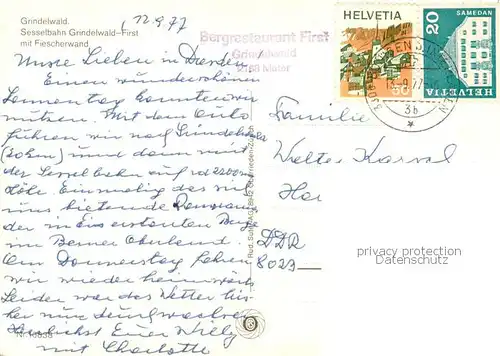 Grindelwald.
Sesselbahn Grindelwald-First
mit Fiescherwand.
12.9.77
Bergrestaurant First
Grindelwald
HELVETIA
30
20
SAMEDAN
HELVETIA
3b
Unsere Lieben in Dresden
Einen wunderschönen
Sonnentag konnten wir
nützen. Mit dem Auto
fuhren wir nach Grindelwald
(20km) und dann mit
der Sesselbahn auf rd 2200m
Höhe. Einmalig das sich
uns bietende Panorama
der in Eis erstarrten Berge
im Berner Oberland.
Am Donnerstag fahren
wir wieder heimwärts
Leider war das Wetter bis
her nur durchwachsen
Herzlichst Euer Willy
mit Charlotte
Familie
Walter
DDR
8029
privacy protection
Datenschutz